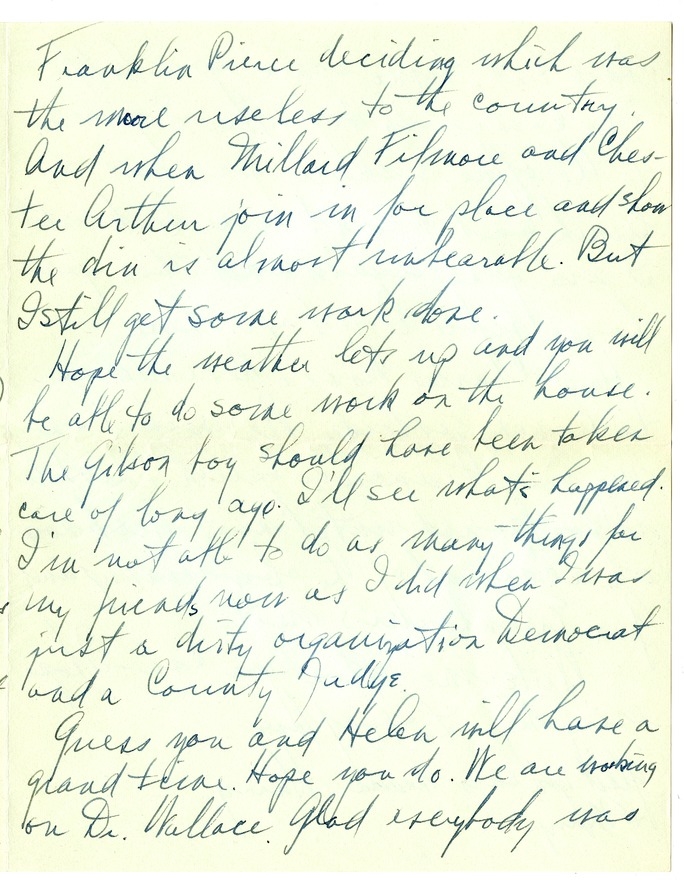 Franklin Pierce deciding which was
the more useless to the country.
And when Millard Filmore and Ches-
ter Arthur join in for place and show
the din is almost unbearable. But
I still get some work done.
Hope the weather lets up and you will
be able to do some work on the house.
The Gibson boy should have been taken
care of long ago. I'll see what's happened.
I'm not able to do as many things for
my friends now as I did when I was
just a dirty organization Democrat
and a County Judge.
Guess you and Helen will have a
grand time. Hope you do. We are working
on Dr. Wallace. Glad everybody was